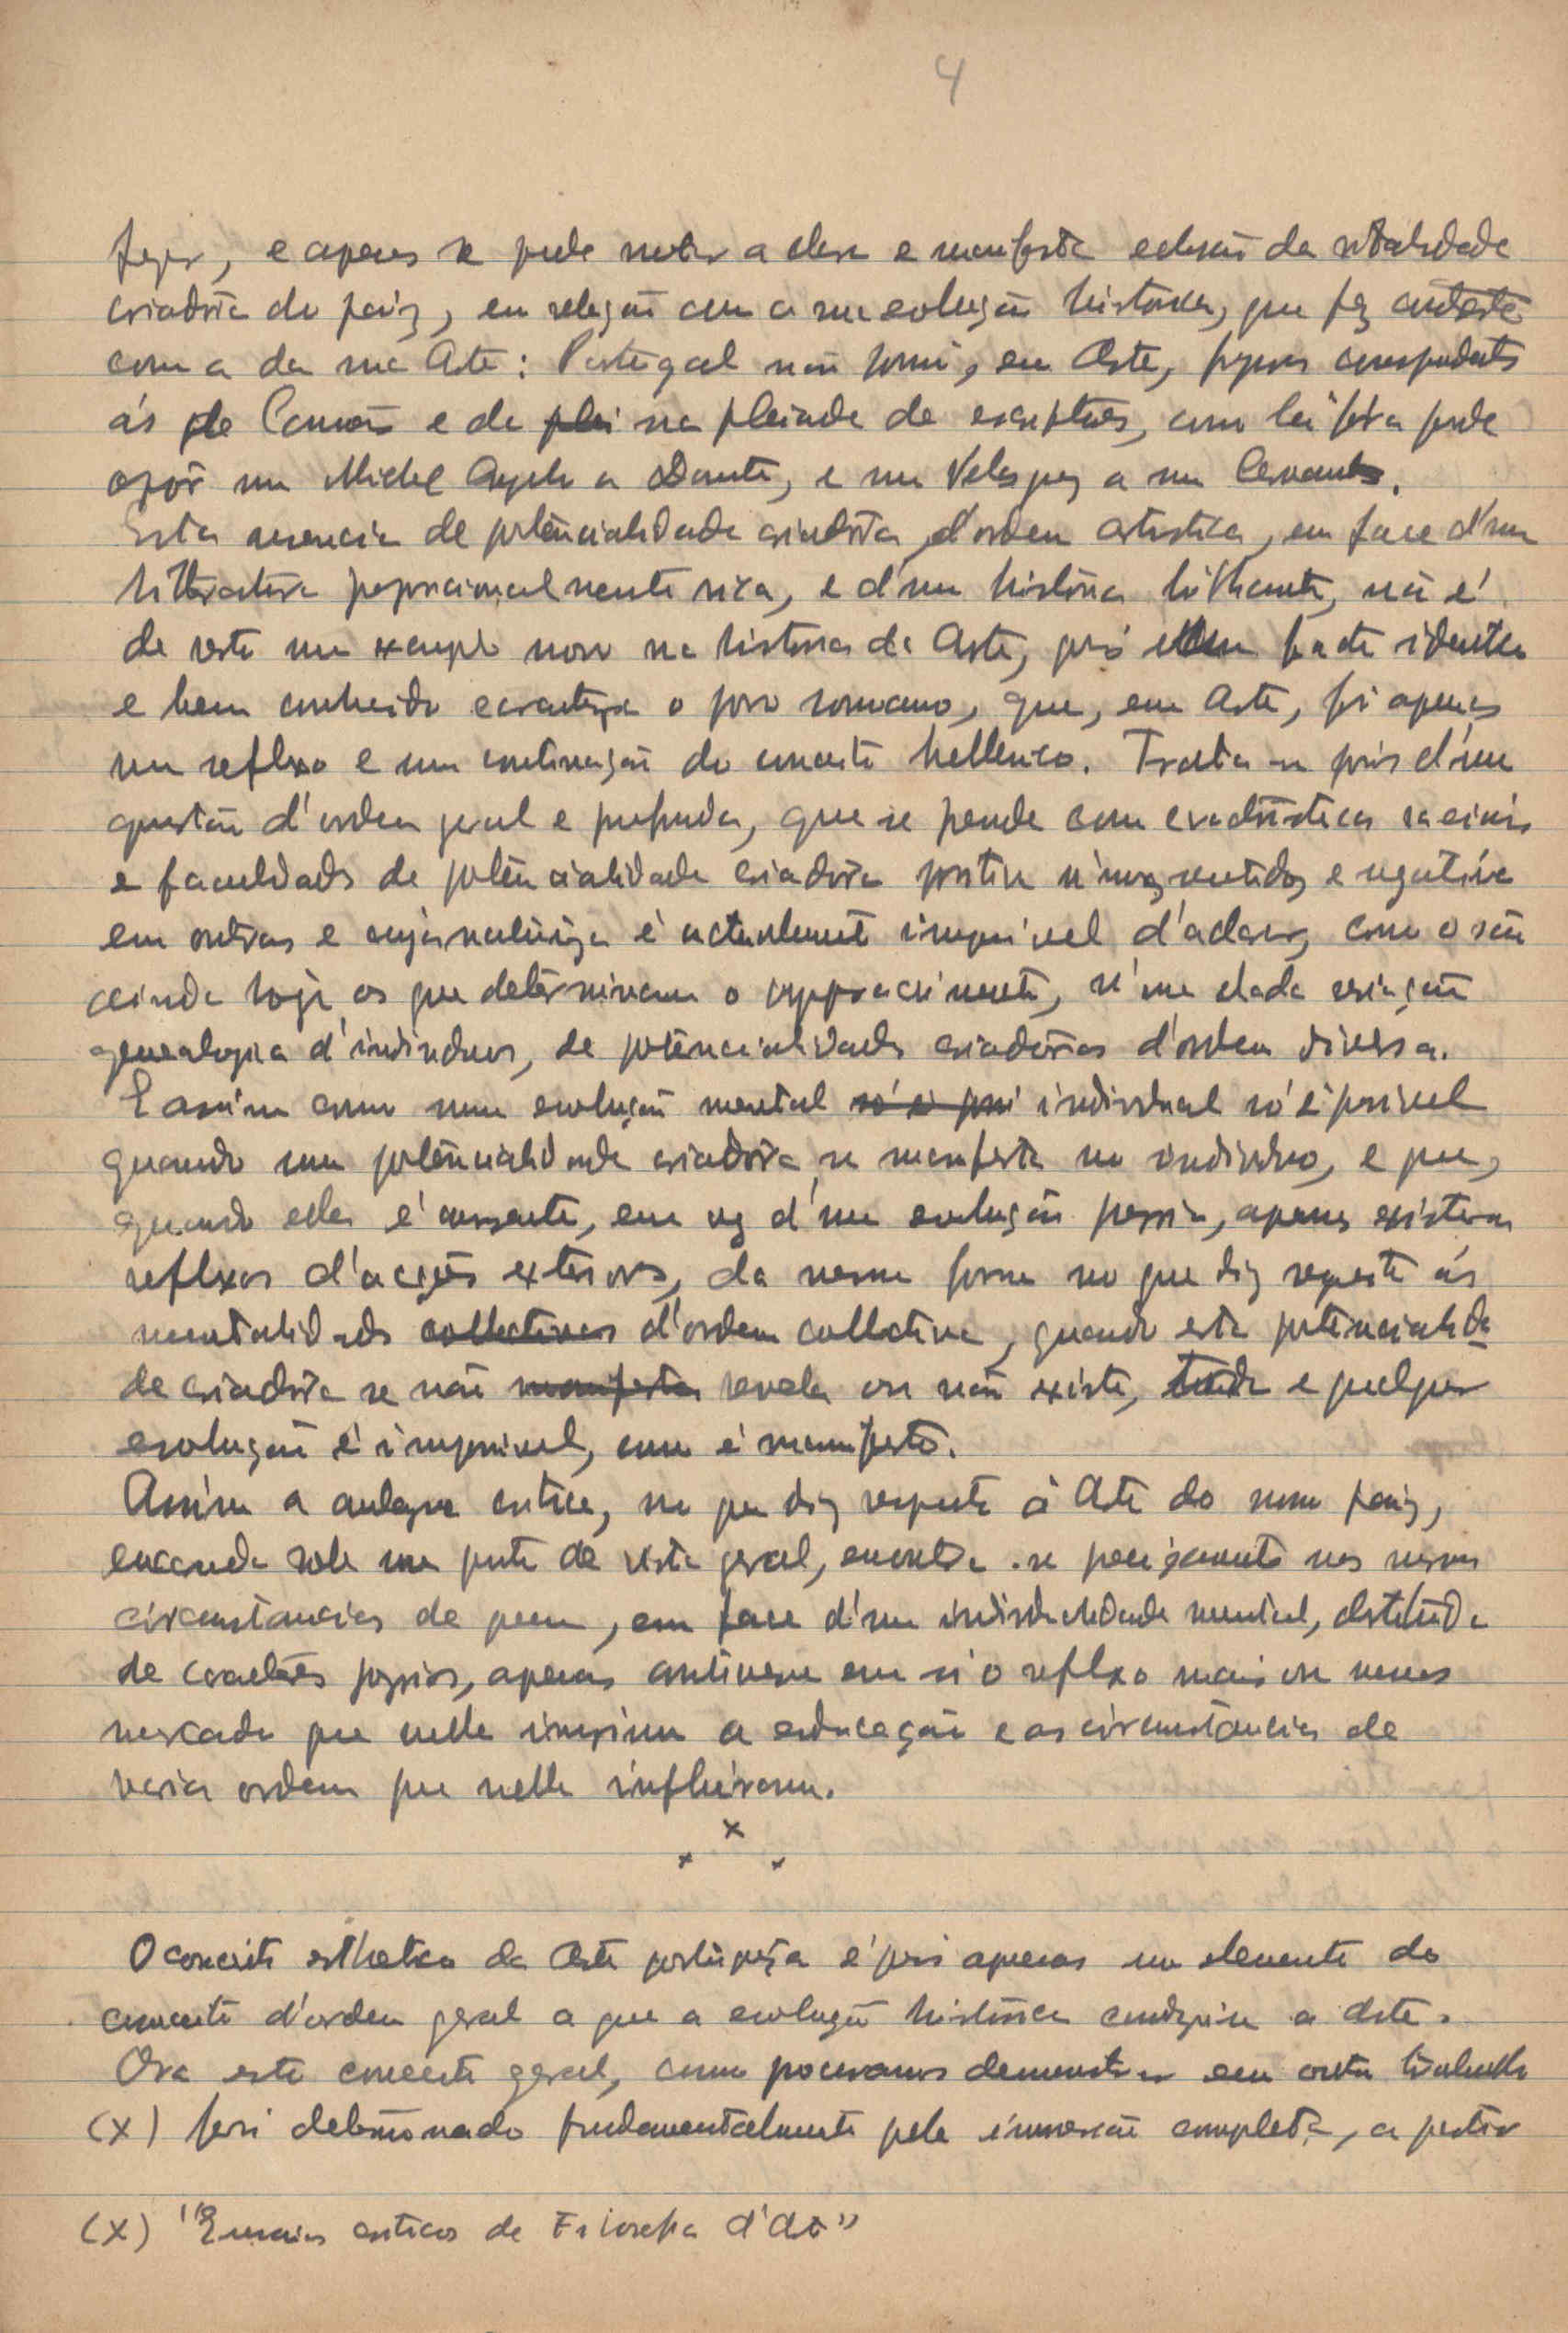 4
fazer, e apenas se pode notar a clara e manifesta eclosão da vitalidade
criadôra do paiz, em relação com a sua evolução historica, que faz contraste
com a da sua Arte: Portugal não possui, em Arte, figuras correspondentes
ás de Camões e da plei sua pleiade de escriptôres, como lá fóra pode
opôr um Michel Angelo a Dante, e um Velasquez a um Cervantes.
Esta ausencia de potencialidade criadôra, d'ordem artistica, em face d'uma
litteratura proporcionalmente rica, e d'uma história brilhante, não é
de resto um exemplo novo na historia da Arte, pois facto identico
e bem conhecido caracterisa o povo romano, que, em Arte, foi apenas
um reflexo e uma continuação do conceito hellenico. Trata-se pois d'uma
questão d'ordem geral e profunda, que se prende com caracteristicas raciais
e faculdades de potencialidade criadôra positiva n'uns sentidos e negativa
em outros e cuja natureza é actualmente impossivel d'aclarar, como o são
ainda hoje, os que determinam o apparecimento, n'uma dada
genealogica d'individuos, de potencialidades criadôras d'ordem diversa.
E assim como uma evolução mental só é possi individual só é possivel
quando uma potencialidade criadôra se manifesta no individuo, e que,
quando ella é ausente, em vez d'uma evolução propria, apenas existem
reflexos d'acções exteriores, da mesma forma no que diz respeito ás
mentalidades collectivas d'ordem collectiva, quando esta potencialida-
de criadôra se não manifesta revela ou não existe, toda e qualquer
evolução é impossivel, como é manifesto.
Assim a critica, no que diz respeito á Arte do nosso paiz,
encarada sob um ponto de vista geral, encontra-se precisamente nas mesmas
circumstancias de quem, em face d'uma individualidade mental, destituida
de caractéres proprios, apenas contivesse em si o reflexo mais ou menos
marcado que nella imprimiu a educação e as circumstancias de
varia ordem que nella influiram.
x
x x
O conceito esthetico da Arte portugueza é pois apenas um elemento do
conceito d'ordem geral a que a evolução histórica conduziu a Arte.
Ora este conceito geral, como procuramos demonstrar em outro trabalho
(x) foi determinado fundamentalmente pela immersão completa, a partir
(x) "Ensaios criticos de Filosofia d'Arte"